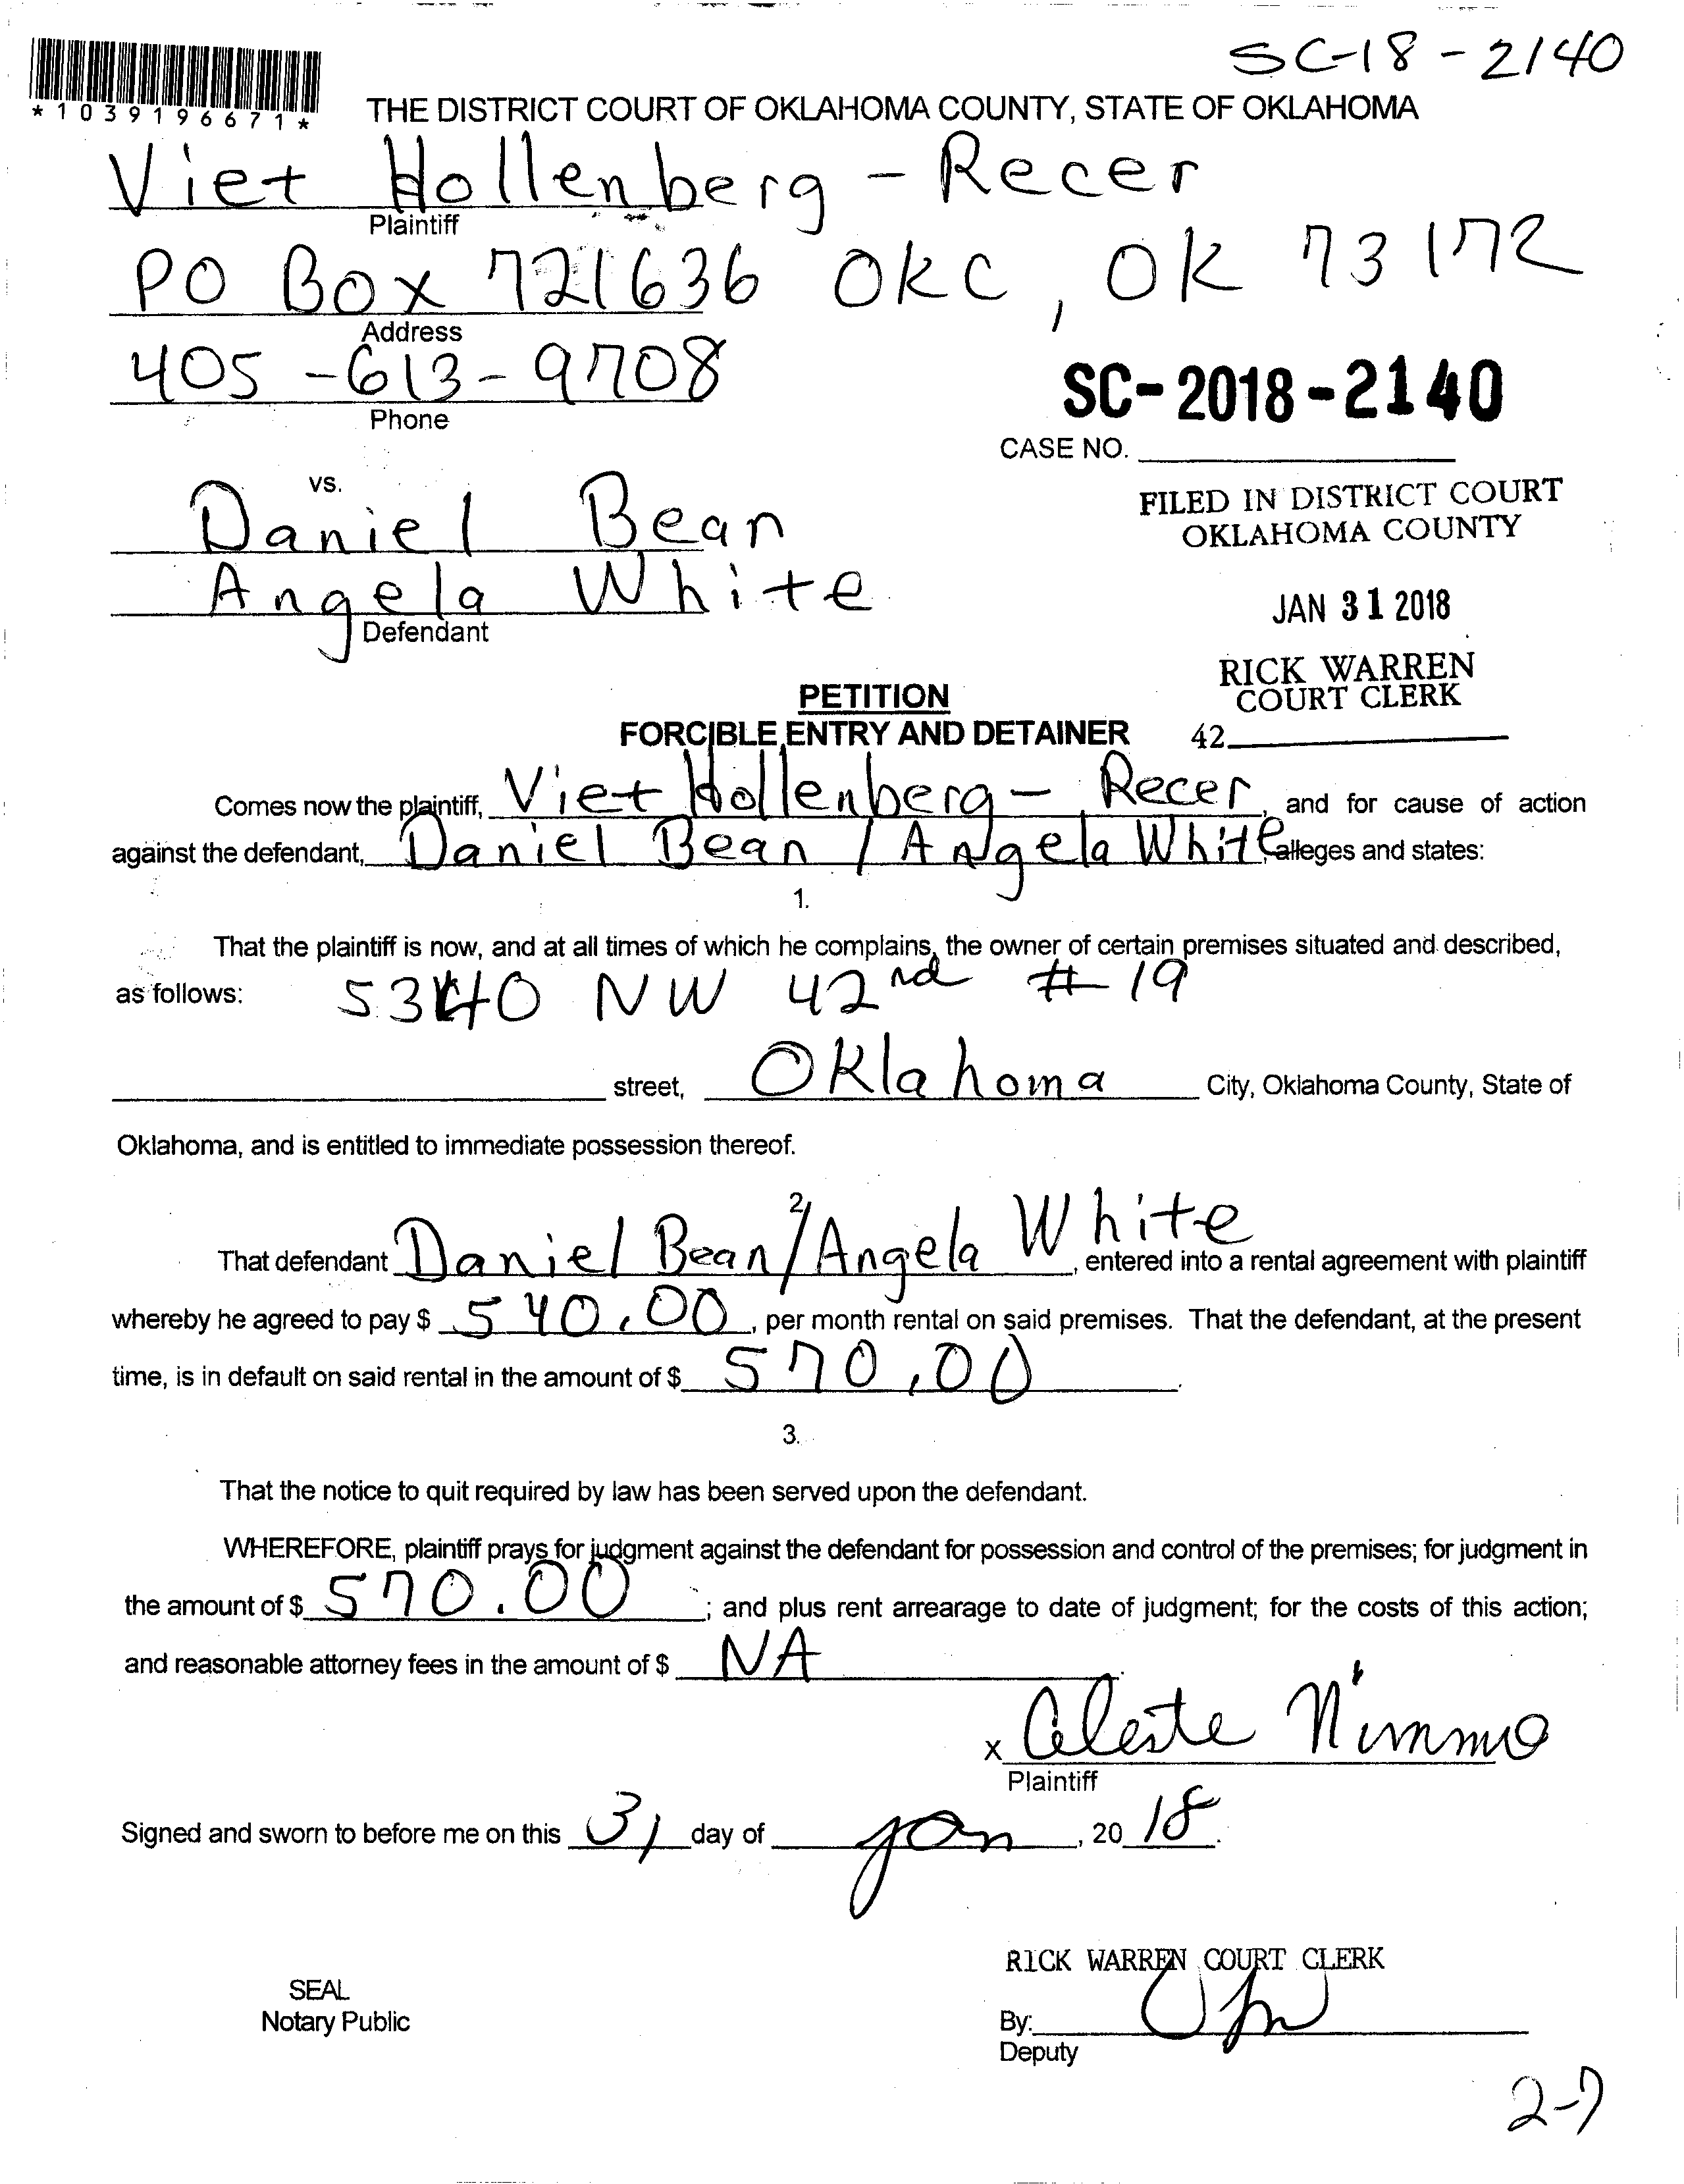 SC-18-2140
*1039196671*
THE DISTRICT COURT OF OKLAHOMA COUNTY, STATE OF OKLAHOMA
Viet Hollenberg-Recer
Plaintiff
PO Box 721636 OKC, OK 73172
Address
405-613-9708
Phone
SC-2018-2140
CASE NO.
vs.
Daniel Bean
Angela White
Defendant
FILED IN DISTRICT COURT
OKLAHOMA COUNTY
JAN 31 2018
RICK WARREN
COURT CLERK
42
PETITION
FORCIBLE ENTRY AND DETAINER
Comes now the plaintiff, Viet Hollenberg-Recer, and for cause of action
against the defendant, Daniel Bean / Angela White, alleges and states:
1.
That the plaintiff is now, and at all times of which he complains, the owner of certain premises situated and described,
as follows: 5340 NW 42nd #19
street, Oklahoma City, Oklahoma County, State of
Oklahoma, and is entitled to immediate possession thereof.
2.
That defendant Daniel Bean/Angela White, entered into a rental agreement with plaintiff
whereby he agreed to pay $ 540.00, per month rental on said premises. That the defendant, at the present
time, is in default on said rental in the amount of $ 570.00.
3.
That the notice to quit required by law has been served upon the defendant.
WHEREFORE, plaintiff prays for judgment against the defendant for possession and control of the premises; for judgment in
the amount of $ 570.00; and plus rent arrearage to date of judgment; for the costs of this action;
and reasonable attorney fees in the amount of $ NA.
x Celeste Nimmo
Plaintiff
Signed and sworn to before me on this 31 day of Jan, 2018.
RICK WARREN COURT CLERK
SEAL
Notary Public
By:
Deputy
2-7